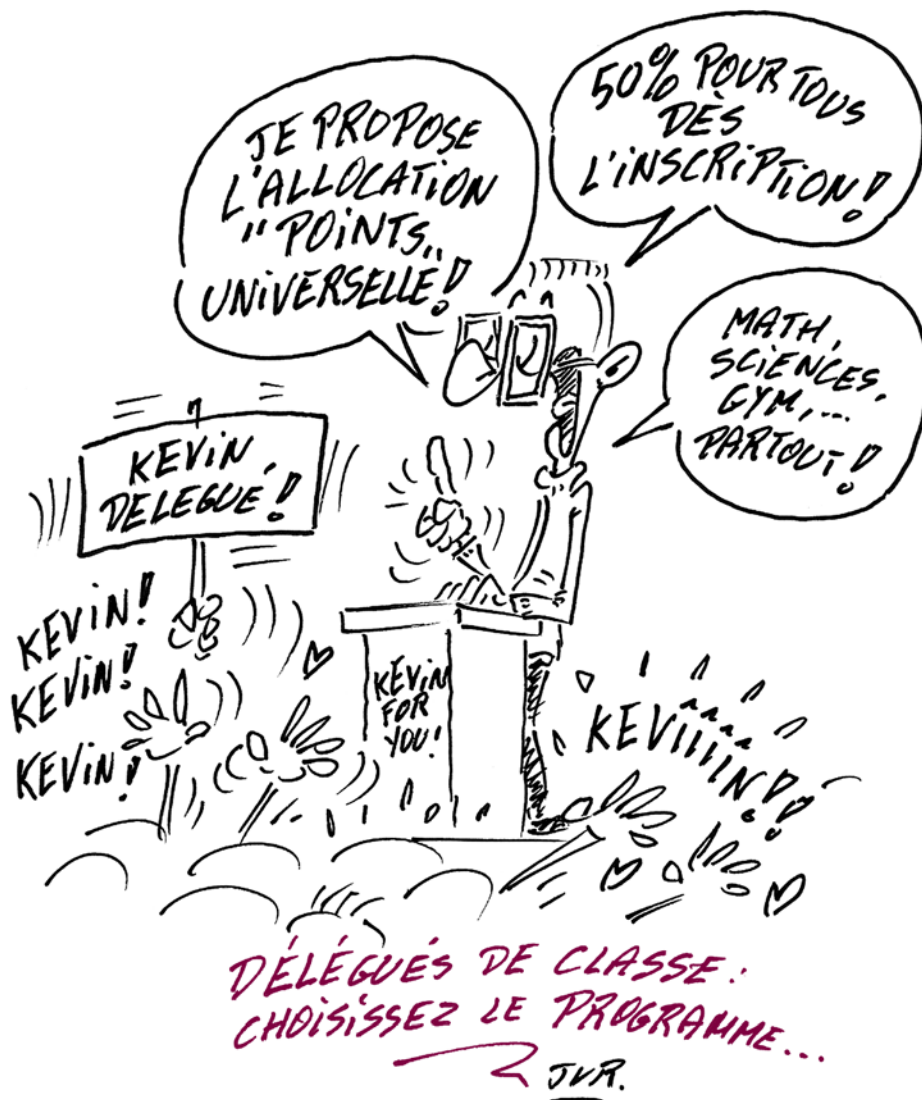 JE PROPOSE
L'ALLOCATION
"POINTS"
UNIVERSELLE!
50% POUR TOUS
DÈS
L'INSCRIPTION!
MATH,
SCIENCES,
GYM,...
PARTOUT!
KEVIN
DELEGUÉ!
KEVIN!
KEVIN!
KEVIN!
KEVIN
FOR
YOU!
KEVIIIIN!!
DÉLÉGUÉS DE CLASSE:
CHOISISSEZ LE PROGRAMME...
JVR.